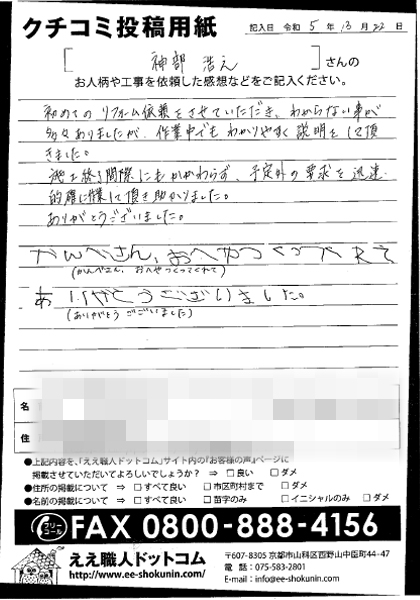 クチコミ投稿用紙
記入日 令和 5 年 月 22 日
[ 神部 浩え ] さんの
お人柄や工事を依頼した感想などをご記入ください。
初めてのリフォーム依頼をさせていただき、わからない事が
多々ありましたが、作業中でもわかりやすく説明をして頂
きました。
終る間際にもかかわらず、予定外の要求を迅速
的確に作業して頂き助かりました。
ありがとうございました。
かんべさん、おへやつくってくれて
(かんべさん、おへやつくってくれて)
ありがとうございました。
(ありがとうございました)
名
住
●上記内容を、「ええ職人ドットコム」サイト内の『お客様の声』ページに
掲載させていただいてよろしいでしょうか? ⇒ □良い □ダメ
●住所の掲載について ⇒ □すべて良い □市区町村まで □ダメ
●名前の掲載について ⇒ □すべて良い □苗字のみ □イニシャルのみ □ダメ
フリーコール FAX 0800-888-4156
ええ職人ドットコム
http://www.ee-shokunin.com/
〒607-8305 京都市山科区西野山中臣町44-47
電話:075-583-2801
E-mail:info@ee-shokunin.com